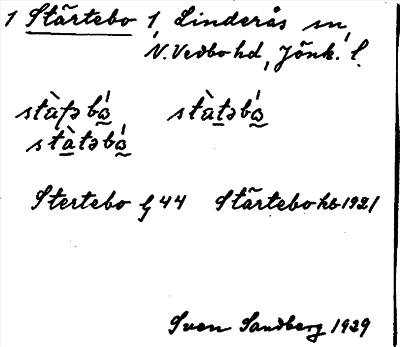 1 Stärtebo 1, Linderås sn,
N. Vedbo hd, Jönk. l.
stàʈəbɷ́ stàtəbɷ́
stàtəbɷ́
Stertebo G 44 Stärtebo hb 1921
Sven Sandberg 1929